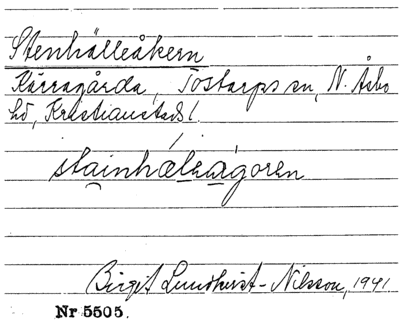 Stenhälleåkern
Kärragårda, Tostarps sn, N. Åsbo
hd, Kristianstads l.
stainhæleágoren
Birgit Lundkvist-Nilsson, 1941
Nr 5505.